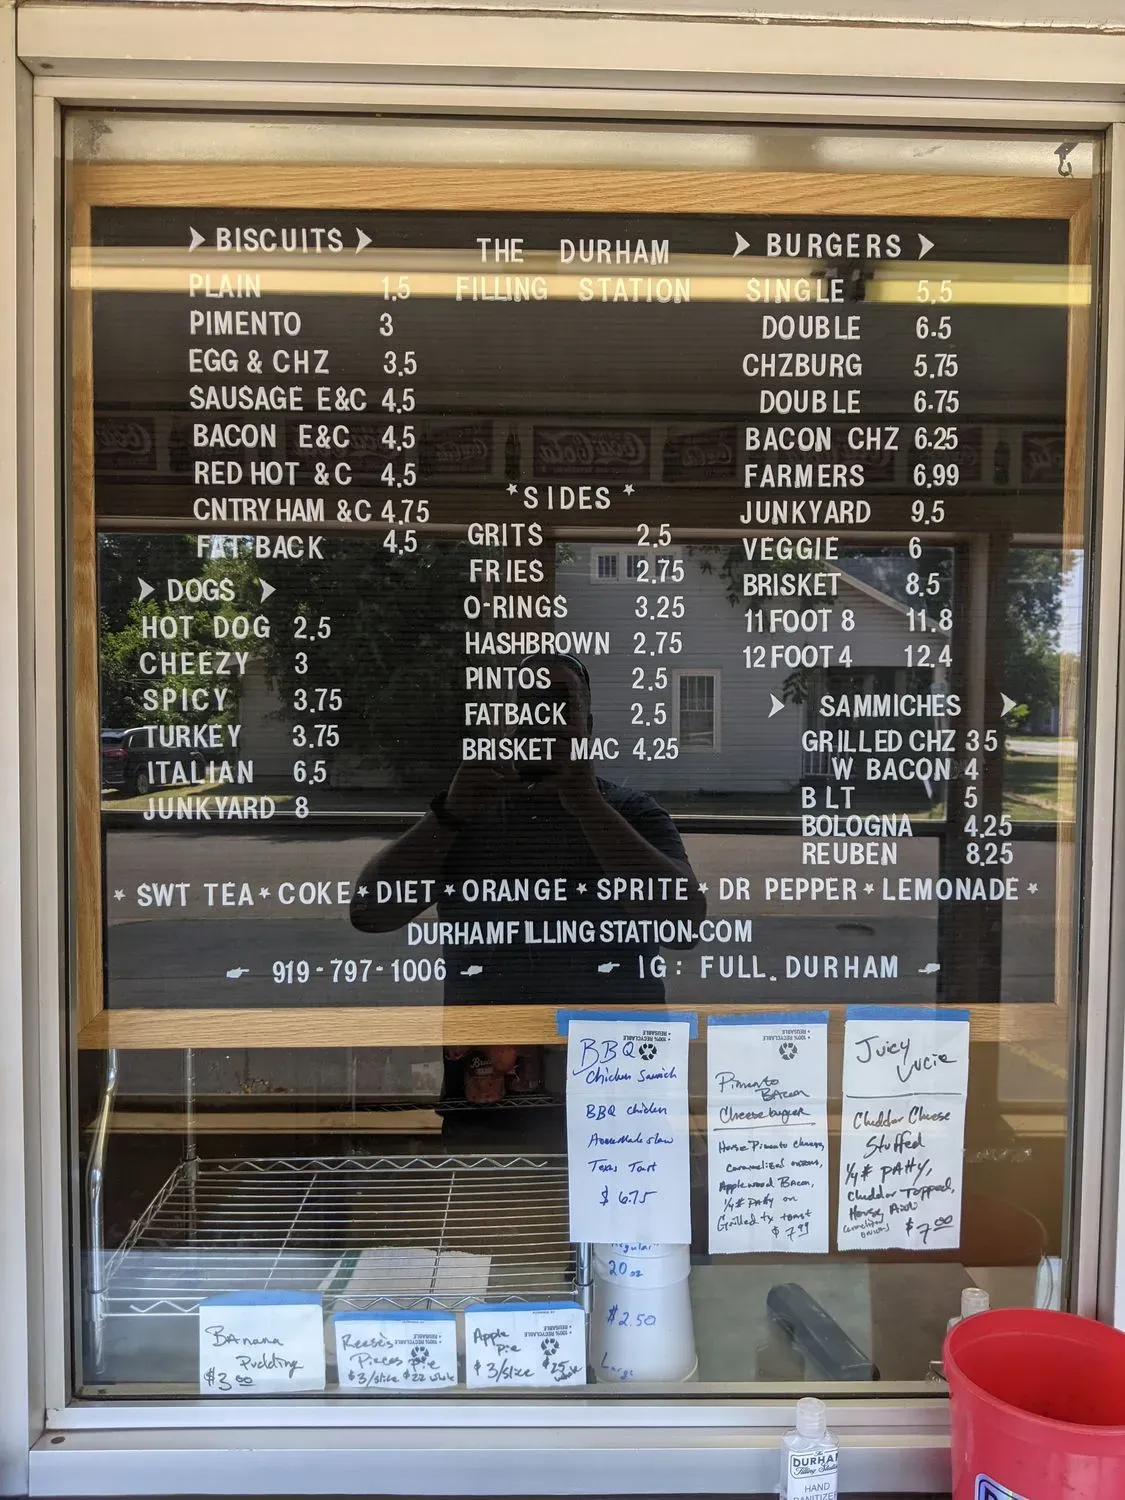 BISCUITS
PLAIN 1.5
PIMENTO 3
EGG & CHZ 3.5
SAUSAGE E&C 4.5
BACON E&C 4.5
RED HOT & C 4.5
CNTRY HAM & C 4.75
FAT BACK 4.5
DOGS
HOT DOG 2.5
CHEEZY 3
SPICY 3.75
TURKEY 3.75
ITALIAN 6.5
JUNKYARD 8
THE DURHAM
FILLING STATION
*SIDES*
GRITS 2.5
FRIES 2.75
O-RINGS 3.25
HASHBROWN 2.75
PINTOS 2.5
FATBACK 2.5
BRISKET MAC 4.25
BURGERS
SINGLE 5.5
DOUBLE 6.5
CHZBURG 5.75
DOUBLE 6.75
BACON CHZ 6.25
FARMERS 6.99
JUNKYARD 9.5
VEGGIE 6
BRISKET 8.5
11 FOOT 8 11.8
12 FOOT 4 12.4
SAMMICHES
GRILLED CHZ 3 5
W BACON 4
BLT 5
BOLOGNA 4.25
REUBEN 8.25
* SWT TEA * COKE * DIET * ORANGE * SPRITE * DR PEPPER * LEMONADE *
DURHAMFILLINGSTATION.COM
919-797-1006 IG: FULL.DURHAM
BBQ
Chicken
BBQ chicken
Texas Toast
$ 6.75
• REUSABLE •
100% RECYCLABLE
Pimento
Bacon
Cheeseburger
House Pimento cheese,
Caramelized onions,
Applewood Bacon,
1/4# Patty on
Grilled tx toast
$ 7.99
• REUSABLE •
100% RECYCLABLE
Juicy
Lucie
Cheddar Cheese
Stuffed
1/4# PAtty,
cheddar Topped,
House
onions $7.00
20 oz
$2.50
Large
BAnana
Pudding
$3.00
Reese's
Pieces Pie
$3/slice $22 whole
Apple
Pie
$3/slice $25
whole
The
DURHAM
Filling Station
HAND
SANITIZER